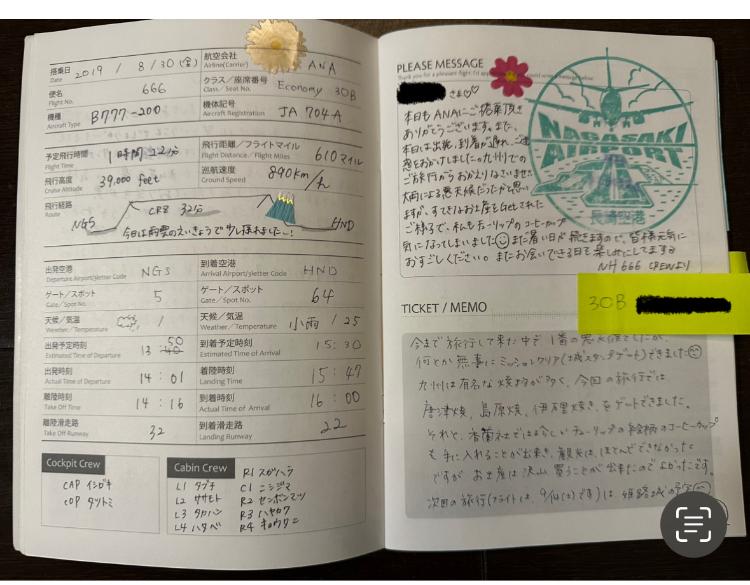 搭乗日 Date 2019 / 8/30 (金) 航空会社 Airline(Carrier) ANA
便名 Flight No. 666 クラス/座席番号 Class / Seat No. Economy 30B
機種 Aircraft Type B777-200 機体記号 Aircraft Registration JA 704A
予定飛行時間 Flight Time 1時間22分 飛行距離/フライトマイル Flight Distance / Flight Miles 610マイル
飛行高度 Cruise Altitude 39,000 feet 巡航速度 Ground Speed 890km/h
飛行経路 Route NGS CRZ 32分 HND
今日は雨雲のえいきょうで少し揺れました〜!
出発空港 Departure Airport/3letter Code NGS 到着空港 Arrival Airport/3letter Code HND
ゲート/スポット Gate / Spot No. 5 ゲート/スポット Gate / Spot No. 64
天候/気温 Weather / Temperature / 天候/気温 Weather / Temperature 小雨 / 25
出発予定時刻 Estimated Time of Departure 13 40 50 到着予定時刻 Estimated Time of Arrival 15:30
出発時刻 Actual Time of Departure 14:01 着陸時刻 Landing Time 15:47
離陸時刻 Take Off Time 14:16 到着時刻 Actual Time of Arrival 16:00
離陸滑走路 Take Off Runway 32 到着滑走路 Landing Runway 22
Cockpit Crew
CAP イシガキ
COP タツトミ
Cabin Crew R1 スガハラ
L1 タグチ C1 ニシジマ
L2 ササモト R2 センボンマツ
L3 タカハシ R3 ハヤカワ
L4 ハタベ R4 キョウタニ
PLEASE MESSAGE
Thank you for a pleasant flight. I'd
さま♡
本日もANAにご搭乗頂き
ありがとうございます。また、
本日は出発、到着が遅れ、ご迷
惑をおかけしました。九州での
ご旅行からおかえりなさいませ
大雨による悪天候だったかと思い
ますが、すてきなお土産をGetされた
ご様子で、私もチューリップのコーヒーカップ
気になってしまいました まだ暑い日が続きますので、皆様元気に
おすごしください。またお会いできる日を楽しみにしてます
NH666 CREWより
NAGASAKI
AIRPORT
長崎空港
30B
TICKET / MEMO
今まで旅行して来た中で1番の悪天候でしたが、
何とか無事にミッションクリア(城スタンプゲート)できました
九州は有名な焼ものが多く、今回の旅行では
唐津焼、島原焼、伊万里焼き、をゲートできました。
それと、香蘭社では珍しいチューリップの絵柄のコーヒーカップ
も手に入れることが出来き、観光は、ほとんどできなかった
ですが お土産は沢山 買うことが出来たのでよかったです。
次回の旅行(フライトは、